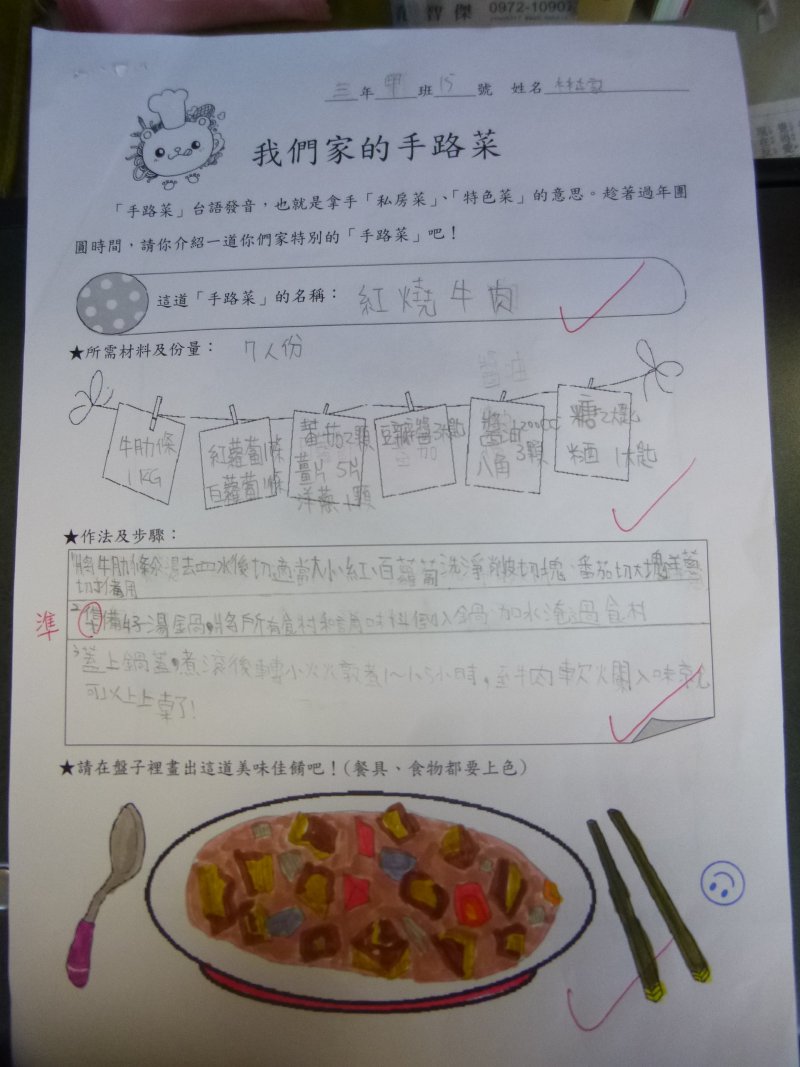 智傑 0972-1090
三年甲班15號 姓名
我們家的手路菜
「手路菜」台語發音，也就是拿手「私房菜」、「特色菜」的意思。趁著過年團
圓時間，請你介紹一道你們家特別的「手路菜」吧！
這道「手路菜」的名稱： 紅燒牛肉
★所需材料及份量： 7人份
醬油
牛肋條
1KG
紅蘿蔔1條
白蘿蔔1條
蕃茄2顆
薑片 5片
洋蔥 1顆
豆瓣醬3大匙
醬油200CC
八角 3顆
糖2大匙
米酒 1大匙
★作法及步驟：
1.將牛肋條汆湯去血水後切適當大小、紅、白蘿蔔洗淨削皮切塊、番茄切大塊洋蔥
切塊備用
準
2.準備好湯鍋，將所有食材和調味料倒入鍋 加水淹過食材
3.蓋上鍋蓋，煮滾後轉小火燉煮1～1.5小時，至牛肉軟
可以上桌了!
★請在盤子裡畫出這道美味佳餚吧！(餐具、食物都要上色)